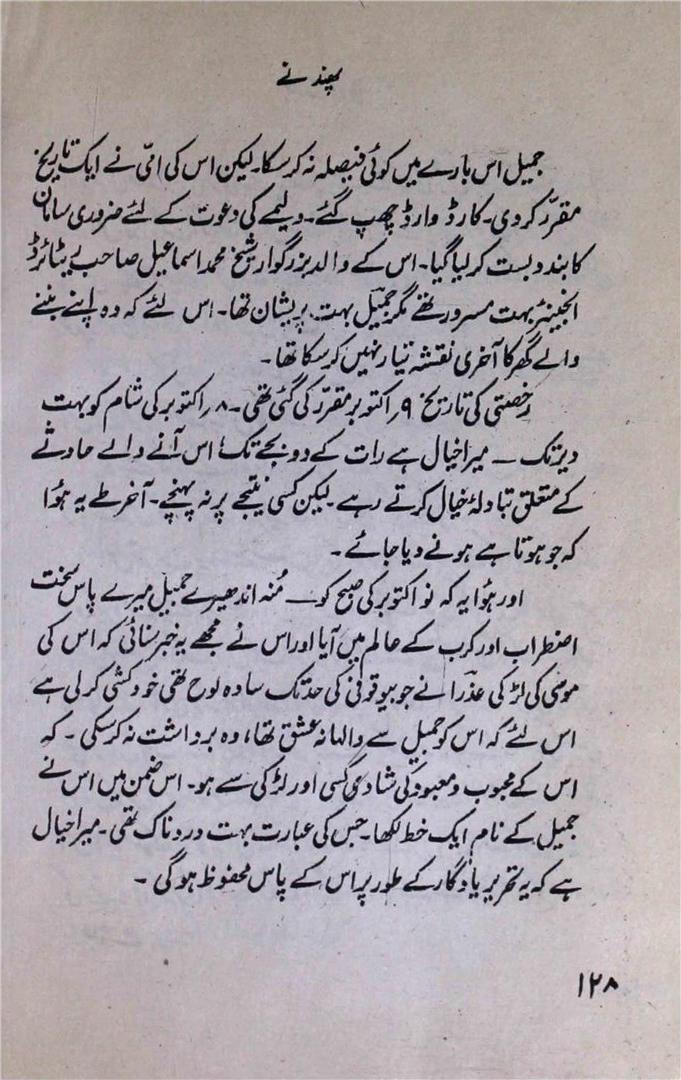 پھندنے
جمیل اس بارے میں کوئی فیصلہ نہ کر سکا۔ لیکن اس کی امّی نے ایک تاریخ
مقرّر کر دی۔ کارڈ وارڈ چھپ گئے۔ ولیمے کی دعوت کے لئے ضروری سامان
کا بندوبست کر لیا گیا۔ اس کے والد بزرگوار شیخ محمد اسماعیل صاحب ریٹائرڈ
انجینئر بہت مسرور تھے مگر جمیل بہت پریشان تھا۔ اس لئے کہ وہ اپنے بننے
والے گھر کا آخری نقشہ تیار نہیں کر سکا تھا۔
رخصتی کی تاریخ ۹؍ اکتوبر مقرّر کی گئی تھی۔ ۸؍ اکتوبر کی شام کو بہت
دیر تک ــ میرا خیال ہے رات کے دو بجے تک اس آنے والے حادثے
کے متعلق تبادلۂ خیال کرتے رہے۔ لیکن کسی نتیجے پر نہ پہنچے۔ آخر طے یہ ہؤا
کہ جو ہوتا ہے ہونے دیا جائے۔
اور ہؤا یہ کہ نو اکتوبر کی صبح کو ــ مُنہ اندھیرے جمیل میرے پاس سخت
اضطراب اور کرب کے عالم میں آیا اور اس نے مجھے یہ خبر سنائی کہ اس کی
موسی کی لڑکی عذرا نے جو بیوقوفی کی حد تک سادہ لوح تھی خودکشی کر لی ہے
اس لئے کہ اس کو جمیل سے والہانہ عشق تھا، وہ برداشت نہ کر سکی۔ کہ
اس کے محبوب و معبود کی شادی کسی اور لڑکی سے ہو۔ اس ضمن میں اس نے
جمیل کے نام ایک خط لکھا۔ جس کی عبارت بہت دردناک تھی۔ میرا خیال
ہے کہ یہ تحریر یادگار کے طور پر اس کے پاس محفوظ ہوگی۔
۱۲۸